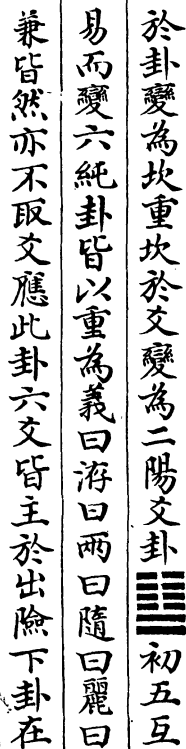 於卦變為坎重坎於爻變為二陽爻卦䷒初五互
易而變六純卦皆以重為義曰洊曰兩曰隨曰麗曰
兼皆然亦不取爻應此卦六爻皆主於出險下卦在